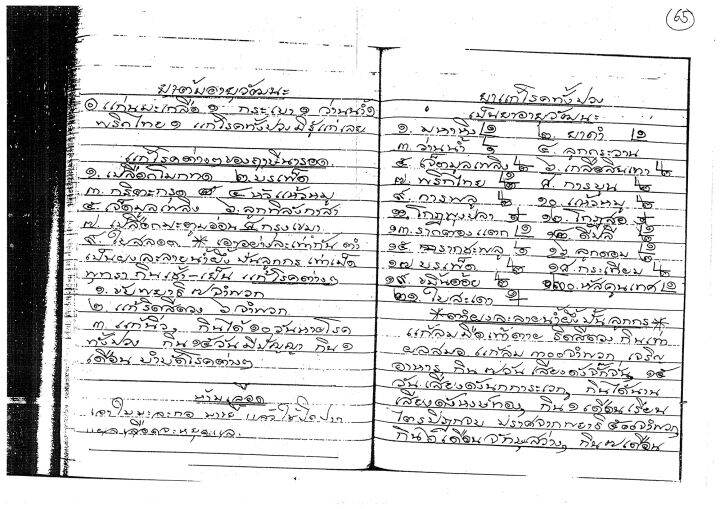 65
ยาต้มอายุวัฒนะ
๑ แก่นมะเกลือ ๑ กระเบา ๑ ว่านน้ำ ๑
พริกไทย ๑ แก้โรคทั้งปวง
แก้โรคต่างๆของ
๑. เปลือก ๒. บรเพ็ด
๓. ๔. หัวแห้วหมู
๕. เจ็ตมูลเพลิง ๖. ลูก
๗. เปลือกมะตูมอ่อน ๘. กรุงเขมา
๙. ใบสลอด * เอาอย่างละเท่ากัน ตำ
เป็นผงละลายน้ำผึ้ง ปั้นลูกกร เท่าเม็ด
พุทรา กินเช้า-เย็น แก้โรคต่างๆ
๑. พยาธิ ๗ จำพวก
๒. แก้ริดสีดวง ๖ จำพวก
๓. แก้นิ่ว กินได้ ๑๐ วันหายโรค
ทั้งปวง กิน ๑๕ วันมีปัญญา กิน ๑
เดือน บำบัดโรคต่างๆ
ห้ามเลือด
เอาใบมะละกอ แล้วใช้ปิดปาก
แผลเลือดจะหยุด
ยาแก้โรคทั้งปวง
เป็นยาอายุวัฒนะ
๑. มหาหิง ๑ ๒. ยาดำ ๑
๓. ว่านน้ำ ๔. ลูกกระวาน
๕. เจ็ตมูลเพลิง ๖. เกลือสินเทา
๗. พริกไทย ๘. การบูน
๙. การพลู ๑๐. แห้วหมู
๑๑. โกฏพุงปลา ๑๒. โกฏสอ
๑๓. รากตองแตก ๑๔. ดีปลี
๑๕. รากชะพลู ๑๖. ลูกตอม
๑๗. บรเพ็ด ๑๘. กระเทียม
๑๙. ขมิ้นอ้อย ๒๐. หัสคุนเทศ
๒๑. ใบสะเดา
* ตำผงละลายน้ำผึ้งปั้นลูกกร *
แก้ลมมือเท้าตาย ริดสีดวง กินเท่า
ผลสมอ แก้ลม ๓๐๐ จำพวก เจริญ
อาหาร กิน ๗ วัน เสียงดังจักจั่น ๑๕
วัน เสียงดังนกการะเวก กินได้นาน
เสียงดังหงษ์ทอง กิน ๑ เดือนเรียน
ไตรปิฎกจบ ปราศจากพยาธิ ๕๐๐ จำพวก
กินได้ เดือน จักษุสว่าง กิน ๗ เดือน